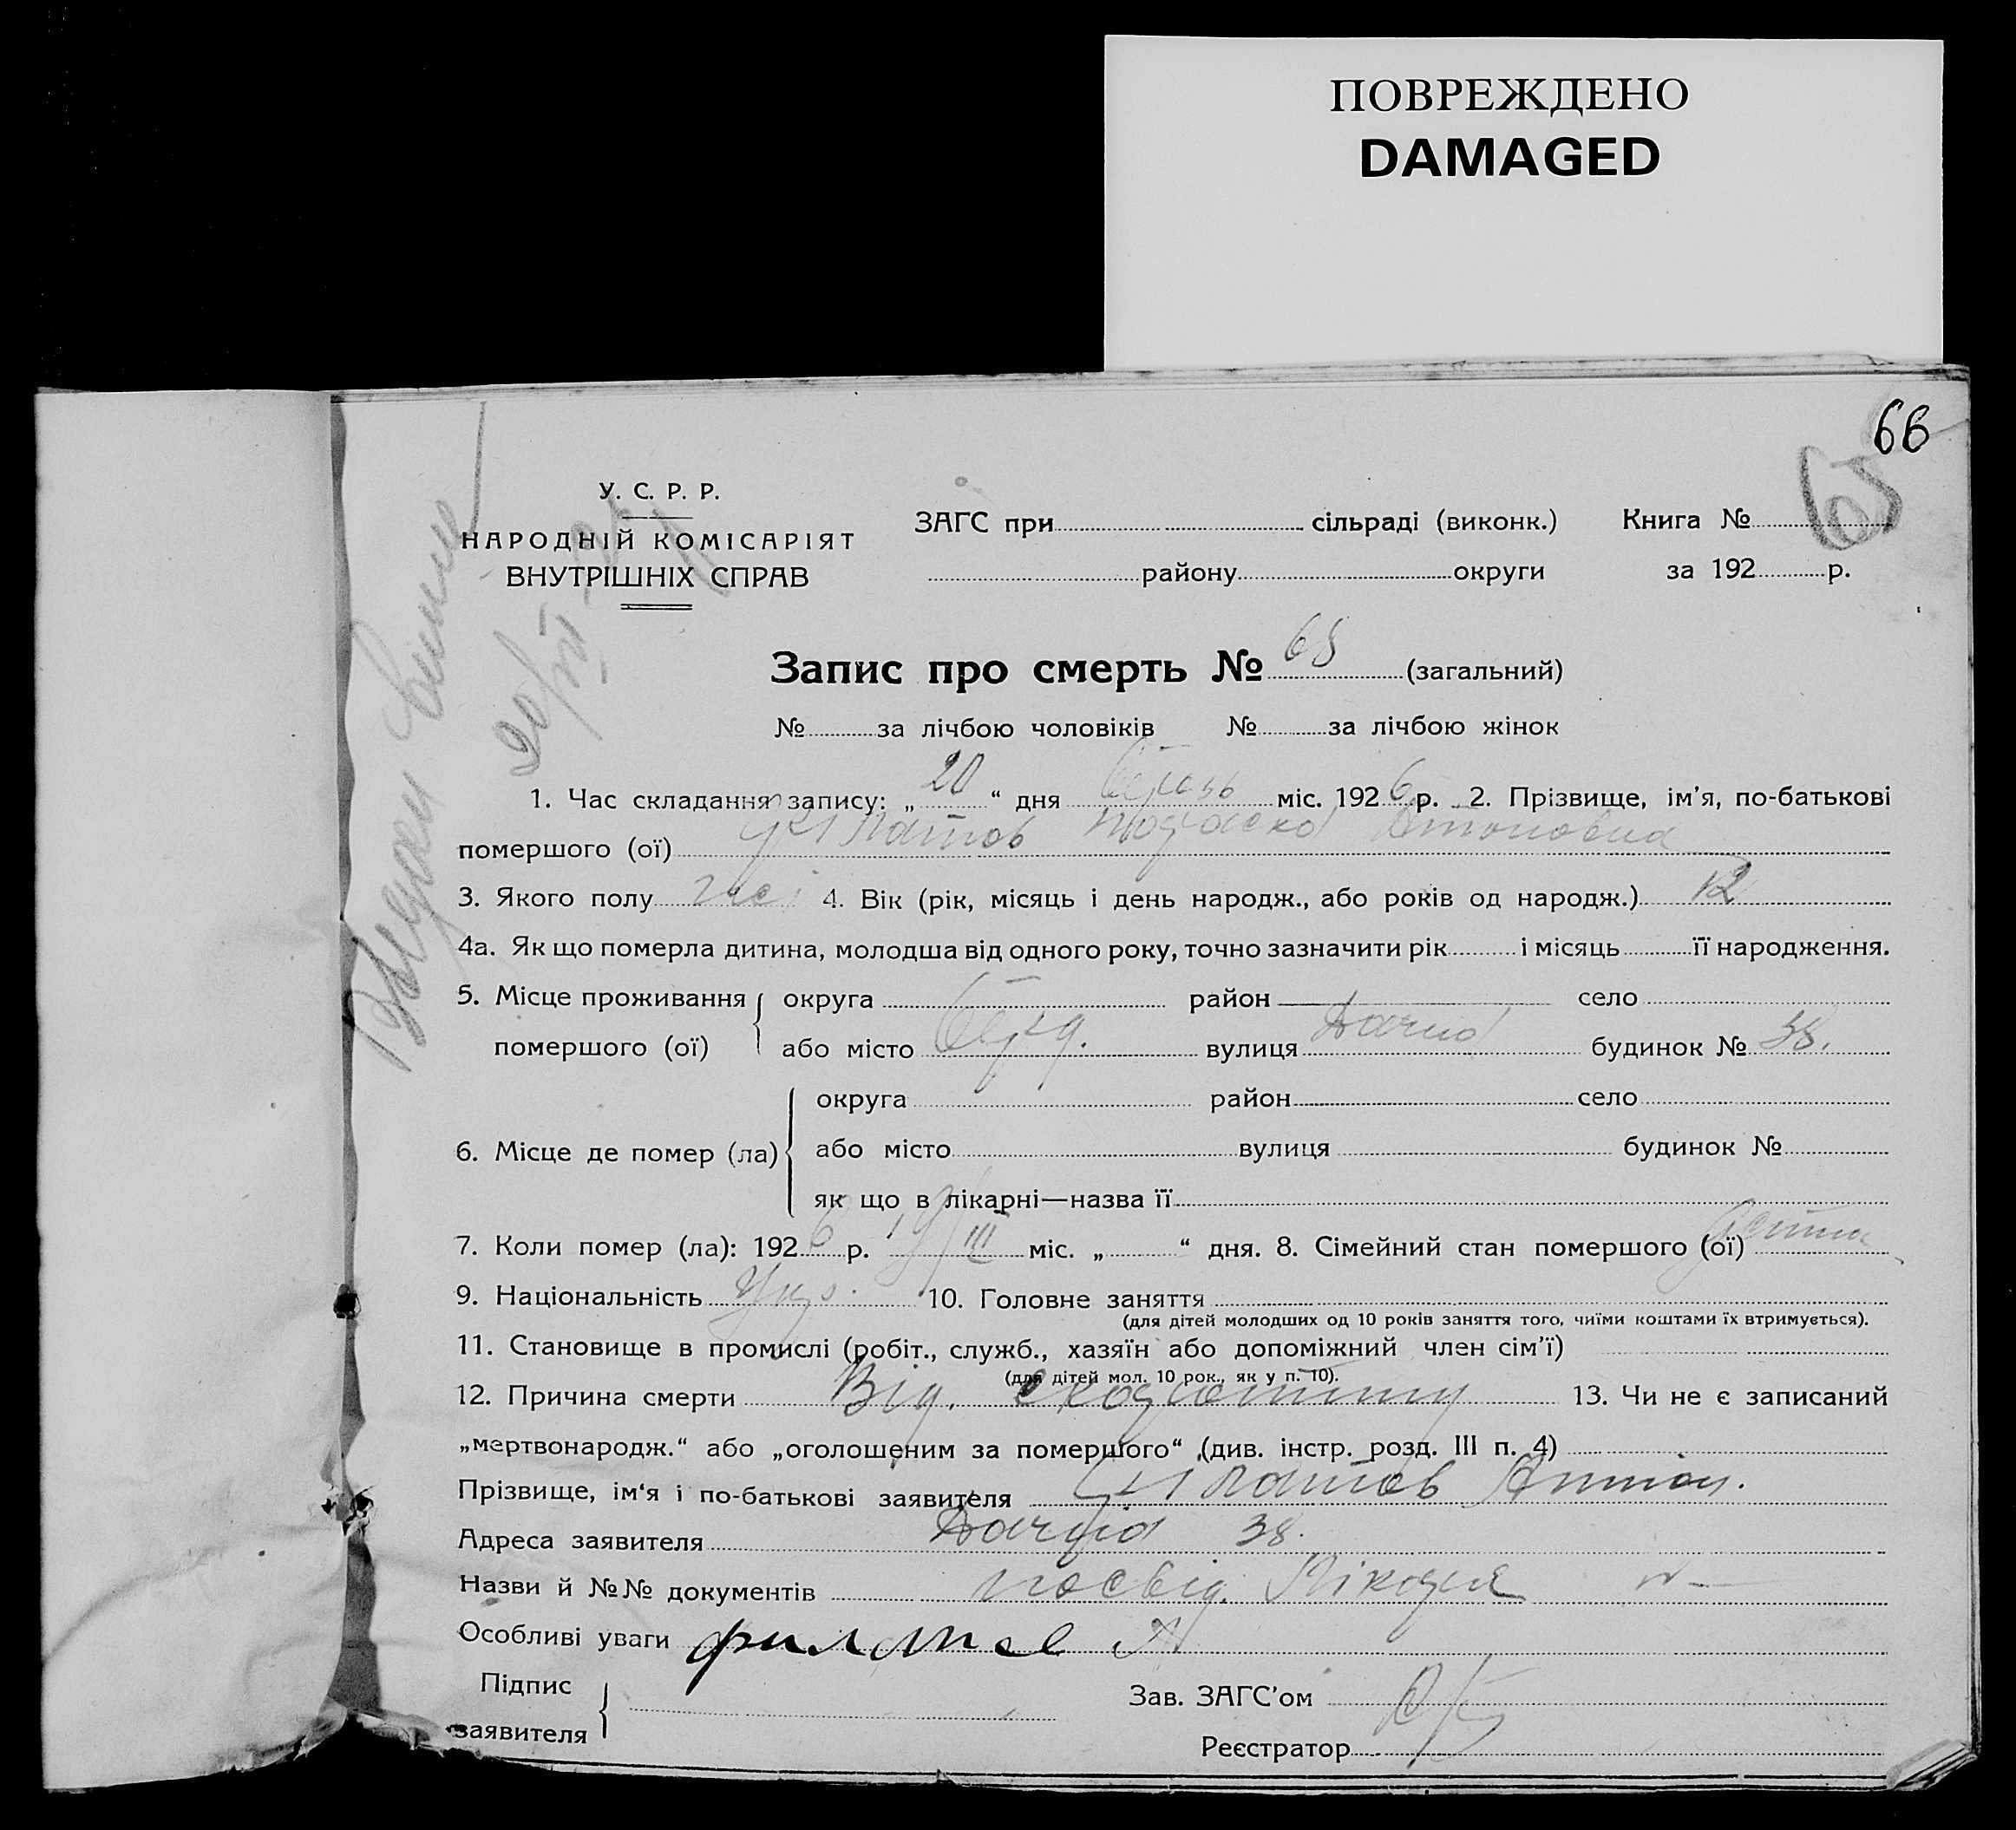 ПОВРЕЖДЕНО
DAMAGED
66
65
У. С. Р. Р.
НАРОДНІЙ КОМІСАРІЯТ
ВНУТРІШНІХ СПРАВ
ЗАГС при сільраді (виконк.) Книга №
району округи за 192 р.
Запис про смерть № 68 (загальний)
№ за лічбою чоловіків № за лічбою жінок
1. Час складання запису: „ 20 “ дня міс. 1926 р. 2. Прізвище, ім’я, по-батькові
помершого (ої) Антоновна
3. Якого полу 4. Вік (рік, місяць і день народж., або років од народж.) 12
4а. Як що померла дитина, молодша від одного року, точно зазначити рік і місяць її народження.
5. Місце проживання округа район село
помершого (ої) або місто вулиця будинок № 38.
округа район село
6. Місце де помер (ла) або місто вулиця будинок №
як що в лікарні—назва її
7. Коли помер (ла): 1926 р. 19/III міс. „ “ дня. 8. Сімейний стан помершого (ої)
9. Національність Укр. 10. Головне заняття
(для дітей молодших од 10 років заняття того, чиїми коштами їх втримується).
11. Становище в промислі (робіт., служб., хазяїн або допоміжний член сім’ї)
(для дітей мол. 10 рок., як у п. 10).
12. Причина смерти Від. 13. Чи не є записаний
„мертвонародж.“ або „оголошеним за помершого“ (див. інстр. розд. III п. 4)
Прізвище, ім‘я і по-батькові заявителя Антон.
Адреса заявителя 38.
Назви й №№ документів посвід. Лікаря
Особливі уваги
Підпис
заявителя
Зав. ЗАГС’ом
Реєстратор